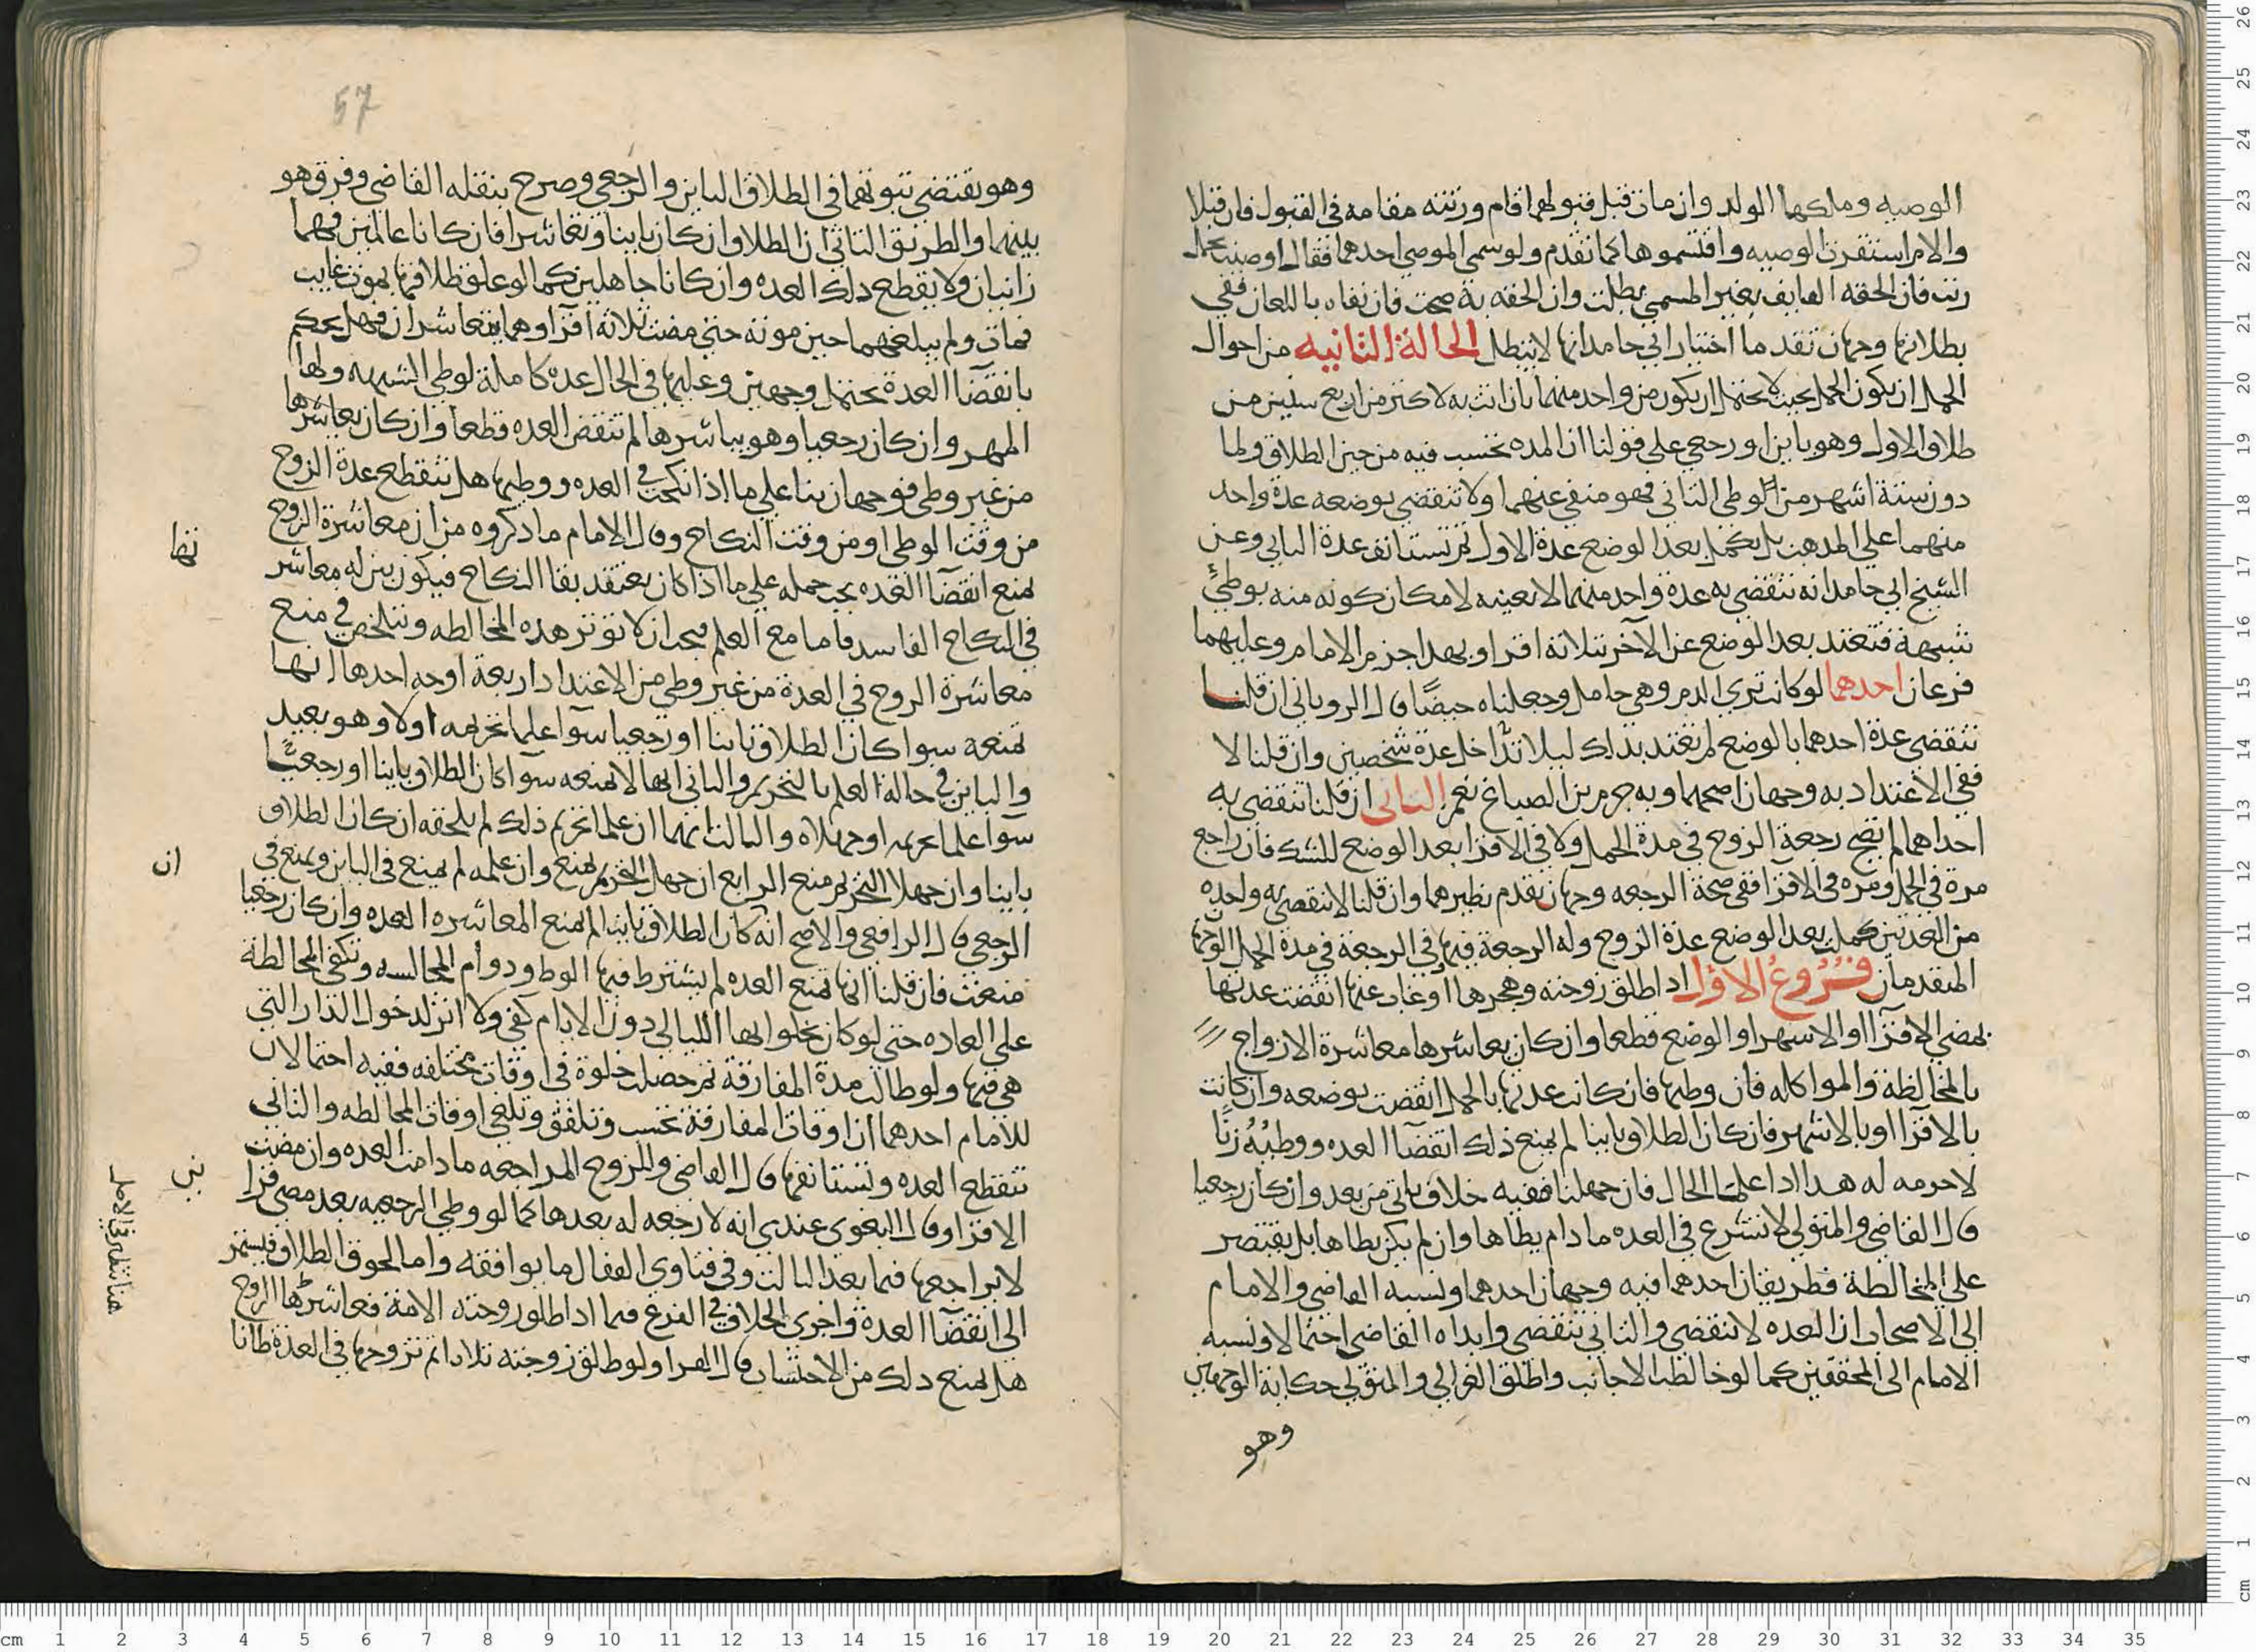 الوصيه وملكها الولد وان مات قبل قبولهما قام ورثته مقامه في القبول فان قبلا
والام استقرت الوصيه واقتسموها كما تقدم ولو سمي الموصي احدهما فقال اوصيت لحمل
زيد فان الحقه القايف بغير المسمي بطلت وان الحقه به صحت فان نفاه باللعان ففي
بطلانها وجهان تقدما اختيار ابي حامد انها لا تبطل الحالة الثانيه من احوال
الحمل ان يكون الحمل بحيث لا يحتمل ان يكون من واحد منهما بان اتت به لاكثر من اربع سنين من
طلاق الاول وهو باين او رجعي على قولنا ان المده تحتسب فيه من حين الطلاق ولما
دون ستة اشهر من الوطي الثاني فهو منفي عنهما ولا تنقضي بوضعه عدة واحد
منهما علي المذهب بل تكمل بعد الوضع عدة الاول ثم تستانف عدة الثاني وعن
الشيخ ابي حامد انه تنقضي به عدة واحد منهما لا بعينه لامكان كونه منه بوطئ
شبهة فتعتد بعد الوضع عن الآخر بثلاثة اقراء وبهذا جزم الامام وعليهما
فرعان احدهما لو كانت تري الدم وهي حامل وجعلناه حيضًا قال الروياني ان قلنا
تنقضي عدة احدهما بالوضع لم تعتد بذلك ليلا تتداخل عدة شخصين وان قلنا لا
ففي الاعتداد به وجهان اصحهما وبه جزم بن الصباغ نعم الثاني ان قلنا تنقضي به
احداهما لم تصح رجعة الزوج في مدة الحمل ولا في الاقرا بعد الوضع للشك فان راجع
مرة في الحمل ومره في الاقرا ففي صحة الرجعه وجهان تقدم نظيرهما وان قلنا لا تنقضي به واحده
من العدتين كملت بعد الوضع عدة الزوج وله الرجعة فيها وفي الرجعة في مدة الحمل الوجهان
المتقدمان فُرُوعُ الاول اذا طلق زوجته وهجرها او غاب عنها انقضت عدتها
بمضي الاقرآ او الاشهر او الوضع قطعا وان كان يعاشرها معاشرة الازواج
بالمخالطة والمواكله فان وطيها فان كانت عدتها بالحمل انقضت بوضعه وان كانت
بالاقرآ او بالاشهر فان كان الطلاق باينا لم يمنع ذلك انقضآ العده ووطيُهُ زنًا
لا حرمه له هذا اذا علما الحال فان جهلنا ففيه خلاف ياتي من بعد وان كان رجعيا
قال القاضي والمتولي لا تشرع في العده ما دام يطاها وان لم يكن يطاها بل يقتصر
علي المخالطة فطريقان احدهما فيه وجهان احدهما ونسبه القاضي والامام
الى الاصحاب ان العده لا تنقضي والثاني تنقضي وابداه القاضي احتمالا ونسبه
الامام الى المحققين كما لو خالطها الاجانب واطلق الغزالي والمتولي حكاية الوجهين
وهو
57
وهو يقتضي ثبوتهما في الطلاق الباين والرجعي وصرح بنقله القاضي وفرق هو
بينهما والطريق الثاني ان الطلاق ان كان باينا وتعاشرا فان كانا عالمين فهما
زانيان ولا يقطع ذلك العده وان كانا جاهلين كما لو علق طلاقها بموت غايب
فمات ولم يبلغهما حين موته حتى مضت ثلاثة اقرآ وهما يتعاشران فهل يحكم
بانقضآ العدة يحتمل وجهين وعليها في الحال عده كاملة لوطي الشبهه ولها
المهر وان كان رجعيا وهو يباشرها لم تنقض العده قطعا وان كان يعاشرها
من غير وطي فوجهان بنا علي ما اذا نكحت في العده ووطيها هل تنقطع عدة الزوج
من وقت الوطي او من وقت النكاح وقال الامام ما ذكروه من ان معاشرة الزوج
تمنع انقضآ العده يجب حمله علي ما اذا كان يعتقد بقا النكاح فيكون بمنزله معاشر
في النكاح الفاسد فاما مع العلم فيجب ان لا تؤثر هذه المخالطه وتتلخص في منع
معاشرة الزوج في العدة من غير وطي من الاعتداد اربعة اوجه احدها انها
تمنعه سوا كان الطلاق باينا او رجعيا سوآ علما تحريمه اولا وهو بعيد
والباين في حالة العلم بالتحريم والثاني انها لا تمنعه سوآ كان الطلاق باينا او رجعيًا
سوآ علما تحريمه او جهلاه والثالث انهما ان علما تحريم ذلك لم يلحقه ان كان الطلاق
باينا وان جهلا التحريم منع الرابع ان جهل التحريم تمنع وان علمه لم يمنع في الباين ويمنع في
الرجعي قال الرافعي والاصح انه كان الطلاق باينا لم تمنع المعاشره العده وان كان رجعيا
منعت فان قلنا انها تمنع العده لم يشترط فيها الوط ودوام المجالسه وتكفي المخالطة
علي العاده حتي لو كان يخلو بها الليالي دون الايام كفي ولا اثر لدخول الدار التي
هي فيها ولو طالت مدة المفارقة ثم حصلت خلوة في اوقات مختلفه ففيه احتمالان
للامام احدهما ان اوقات المفارقة تحتسب وتلفق وتلغي اوقات المخالطه والثاني
تنقطع العده وتستانفها قال القاضي وللزوج المراجعه ما دامت العده وان مضت
الاقرا وقال البغوي عندي انه لا رجعه له بعدها كما لو وطي الرجعيه بعد مضي قرا
لا يراجعها فيما بعد الثالث وفي فتاوي القفال ما يوافقه واما لحوق الطلاق فيستمر
الى انقضآ العدة واجري الخلاف في الفرع فيما اذا طلق زوجته الامة فعاشرها الزوج
هل يمنع ذلك من الاحتساب قال الفرا ولو طلق زوجته ثلاثا ثم تزوجها في العدة ظانا
تها
ان
ني